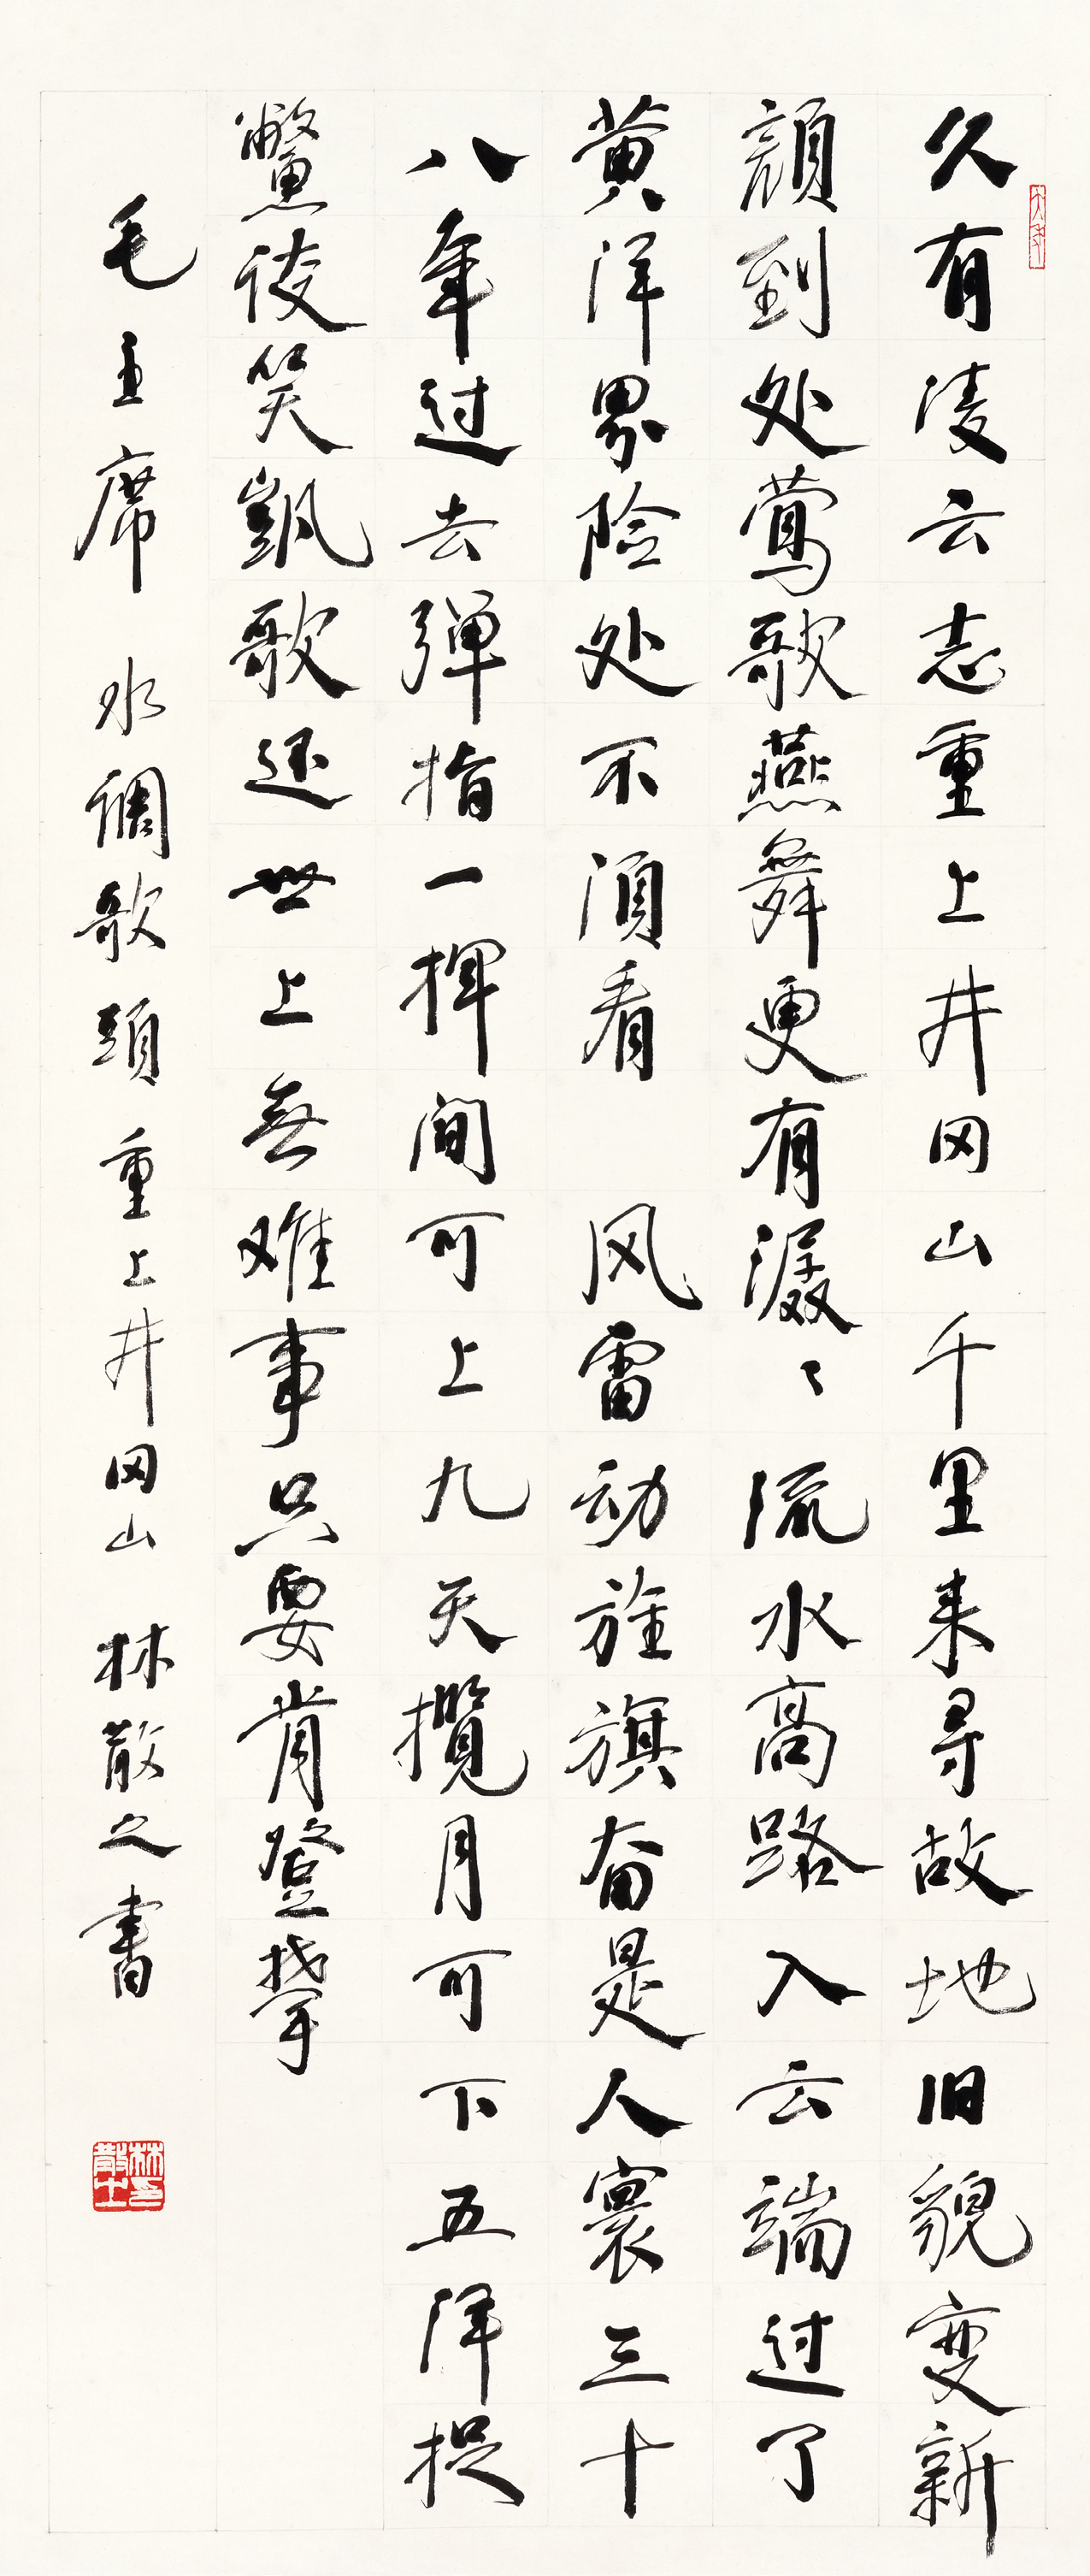 久有凌云志重上井冈山千里来寻故地旧貌变新
顔到处莺歌燕舞更有潺々流水高路入云端过了
黄洋界险处不須看 风雷动旌旗奋是人寰三十
八年过去弹指一挥间可上九天攬月可下五洋捉
鱉谈笑凱歌还世上無难事只要肯登攀
毛主席 水调歌頭 重上井冈山 林散之書
林散之印